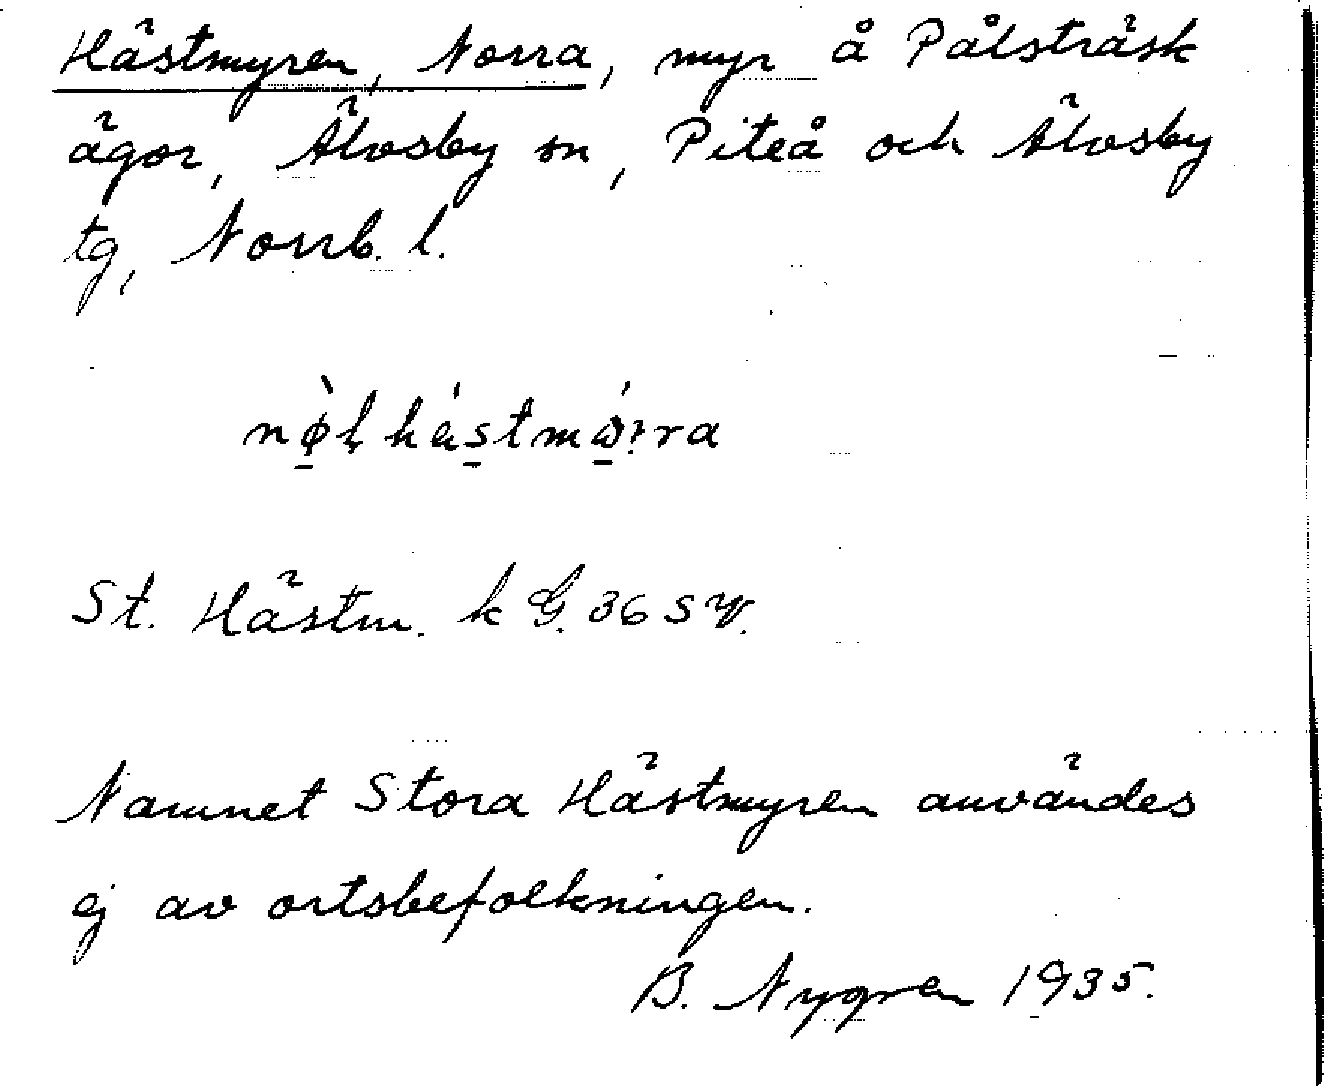 Hästmyren, Norra, myr å Pålsträsk
ägor, Älvsby sn, Piteå och Älvsby
tg, Norrb. l.
St. Hästm. k G. 36 SV.
Namnet Stora Hästmyren användes
ej av ortsbefolkningen.
B. Nygren 1935.